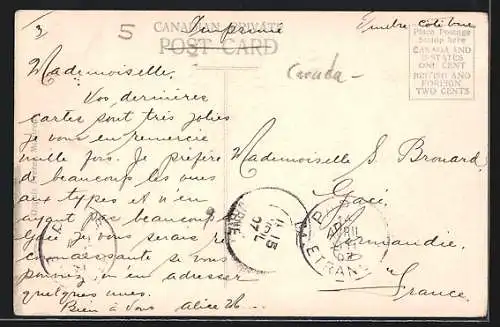 3
5
CANADIAN PRIVATE
POST CARD
Imprimé
Timbre côté vue
Place Postage
Stamp here
CANADA AND
U-STATES
ONE CENT
BRITISH AND
FOREIGN
TWO CENTS
Canada -
Mademoiselle,
Vos dernières
cartes sont très jolies
je vous en remercie
mille fois. Je préfère
de beaucoup les vues
aux types et n'en
ayant pas beaucoup
je vous serais re
connaissante si vous
pouviez m'en adresser
quelques unes.
Bien à vous Alice
Mademoiselle S. Brouard,
Gacé,
Normandie,
France.
15
07
ETRANG